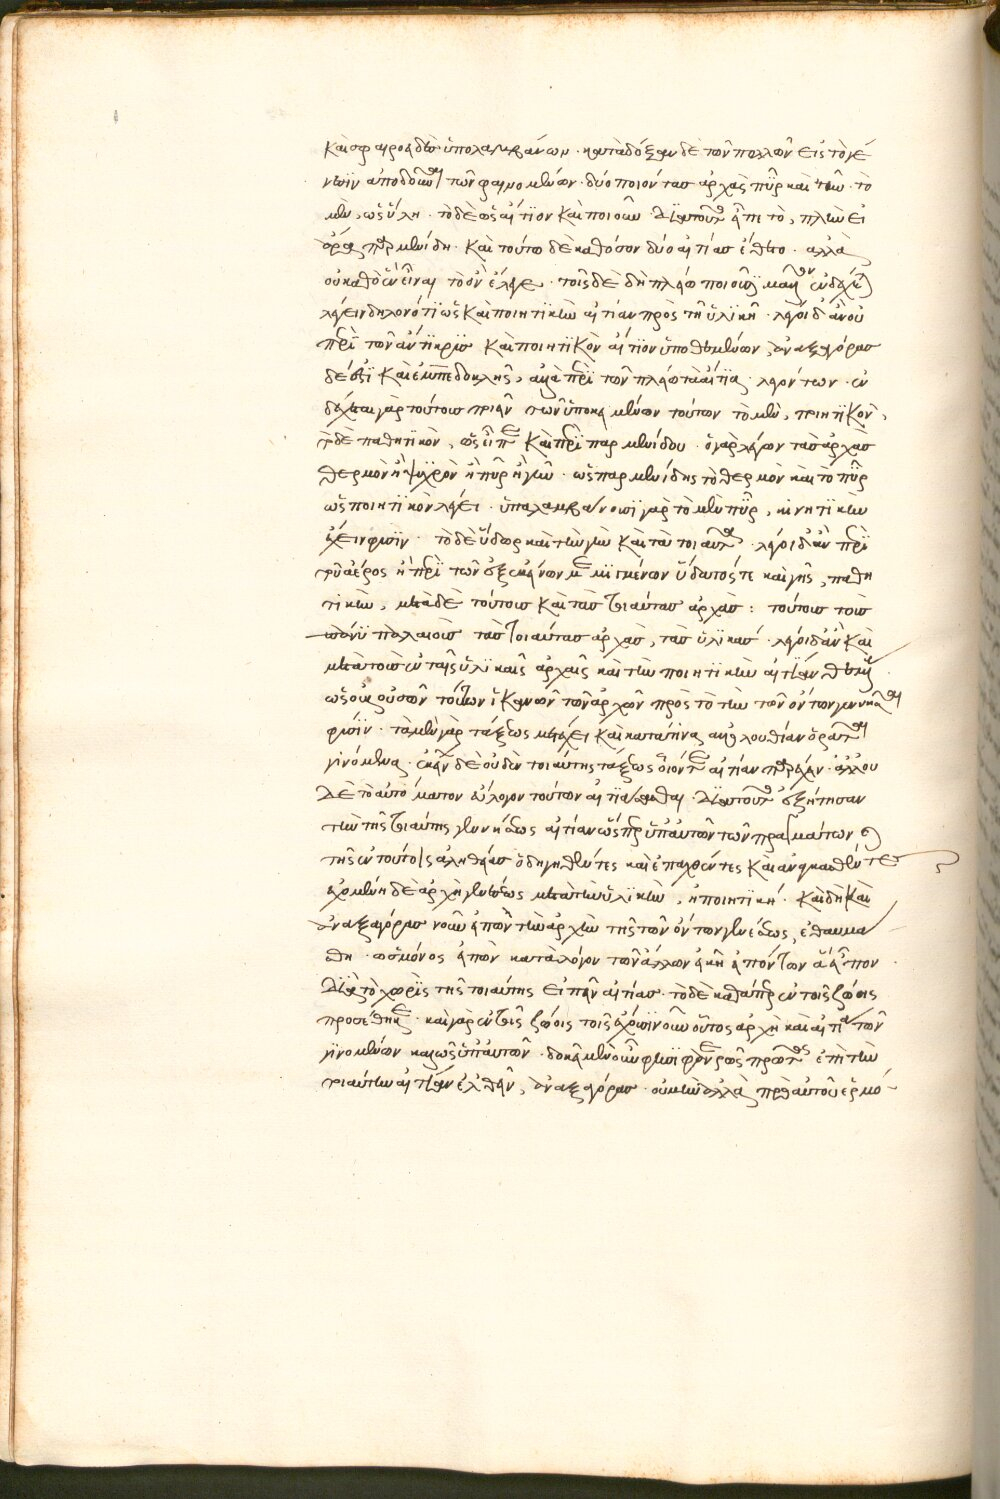 καὶ σφαιροειδὲς ὑπολαμβάνων · κατὰ δόξαν δὲ τῶν πολλῶν εἰς τὸ γέ
νεσιν ἀποδοῦναι τῶν φαινομένων · δύο ποιῶν τὰς ἀρχὰς πῦρ καὶ γῆν · τὸ
μὲν, ὡς ὕλην · τὸ δὲ ὡς αἴτιον καὶ ποιοῦν · διὰ τοῦτο εἶπε τὸ, πλὴν εἰ
ἄρα παρμενίδη · καὶ τούτῳ δὲ καθόσον δύο αἰτίας ἔθετο · ἀλλὰ
οὐ καθὸ ἓν εἶναι τὸ ὂν ἔλεγε · τοῖς δὲ δὴ πλείω ποιοῦσι μᾶλλον ἐνδέχεται
λέγειν δηλονότι ὡς καὶ ποιητικὴν αἰτίαν πρὸς τῇ ὑλικῇ · λέγοι δ' ἂν οὐ
περὶ τῶν ἀντίκρυς καὶ ποιητικὸν αἴτιον ὑποθεμένων, ἀναξαγόρας
δέ ἐστι καὶ ἐμπεδοκλῆς, ἀλλὰ περὶ τῶν πλείω τὰ αἴτια λεγόντων · ἐν
δέχεται γὰρ τούτοις ποιεῖν τῶν ὑποκειμένων τούτων τὸ μὲν, ποιητικὸν,
τὸ δὲ παθητικὸν, ὡς εἶπε καὶ περὶ παρμενίδου · ὁ γὰρ λέγων τὰς ἀρχὰς
θερμὸν ἢ ψυχρὸν ἢ πῦρ ἢ γῆν · ὡς παρμενίδης τὸ θερμὸν καὶ τὸ πῦρ
ὡς ποιητικὸν λέγει · ὑπολαμβάνουσι γὰρ τὸ μὲν πῦρ, κινητικὴν
ἔχειν φύσιν · τὸ δὲ ὕδωρ καὶ τὴν γῆν καὶ τὰ τοιαῦτα · λέγοι δ' ἂν περὶ
τοῦ ἀέρος ἢ περὶ τῶν ἐξ ἐκείνων μεμιγμένων ὕδατός τε καὶ γῆς, παθη
τικὴν, μετὰ δὲ τούτους καὶ τὰς τοιαύτας ἀρχὰς : τούτους τοὺς
πάνυ παλαιοὺς τὰς τοιαύτας ἀρχὰς, τὰς ὑλικάς · λέγοι δ' ἂν καὶ
μετὰ τοὺς ἐν ταῖς ὑλικαῖς ἀρχαῖς καὶ τὴν ποιητικὴν αἰτίαν
ὡς οὐκ οὐσῶν τούτων ἱκανῶν τῶν ἀρχῶν πρὸς τὸ τὴν τῶν ὄντων γεννῆσαι
φύσιν · τὰ μὲν γὰρ τάξεως μετέχει καὶ κατά τινας ἀκολουθίαν ὁρᾶται
γινόμενα · ἐκεῖναι δὲ οὐδὲν τοιαύτης τάξεως αἰτίαν παρέχειν · ἀλλ' οὐ
δὲ τὸ αὐτόματον εὔλογον τούτων αἰτιᾶσθαι · διὰ τοῦτο ἐζήτησαν
τὴν τῆς τοιαύτης γεννήσεως αἰτίαν ὥσπερ ὑπ' αὐτῶν τῶν πραγμάτων καὶ
τῆς ἐν τούτοις ἀληθείας ὁδηγηθέντες καὶ ἐπαχθέντες καὶ ἀναγκασθέντες
ἐχομένη δὲ ἀρχὴ γενέσεως μετὰ τὴν ὑλικὴν, ἡ ποιητική · καὶ δὴ καὶ
ἀναξαγόρας νοῦν εἰπὼν τὴν ἀρχὴν τῆς τῶν ὄντων γενέσεως, ἐθαυμά
σθη · ὡς μόνος εἰπὼν κατὰ λόγον τῶν ἄλλων εἰκῇ εἰπόντων ἃ εἶπον
διὰ τὸ χωρὶς τῆς τοιαύτης εἰπεῖν αἰτίας · τὸ δὲ καθάπερ ἐν τοῖς ζώοις
προσέθηκε · καὶ γὰρ ἐν τοῖς ζώοις τοῖς ἔχουσι νοῦν οὗτος ἀρχὴ καὶ αἰτία τῶν
γινομένων καὶ ὡς ὑπ' αὐτῶν · δοκεῖ μὲν οὖν φησὶ φανερῶς πρῶτος ἐπὶ τὴν
τοιαύτην αἰτίαν ἐλθεῖν, ἀναξαγόρας · οὐ μὴν ἀλλὰ πρὸ αὐτοῦ ἑρμό-